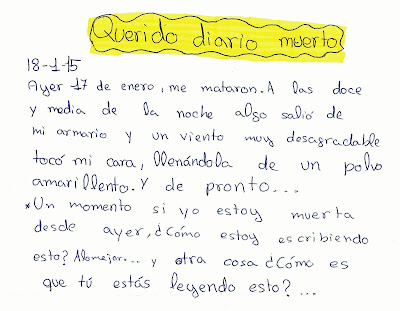 Querido diario muerto
18-1-15
Ayer 17 de enero, me mataron. A las doce
y media de la noche algo salió de
mi armario y un viento muy desagradable
tocó mi cara, llenándola de un polvo
amarillento. Y de pronto...
*Un momento si yo estoy muerta
desde ayer, ¿Cómo estoy escribiendo
esto? Alomejor... y otra cosa ¿Cómo es
que tú estás leyendo esto?...